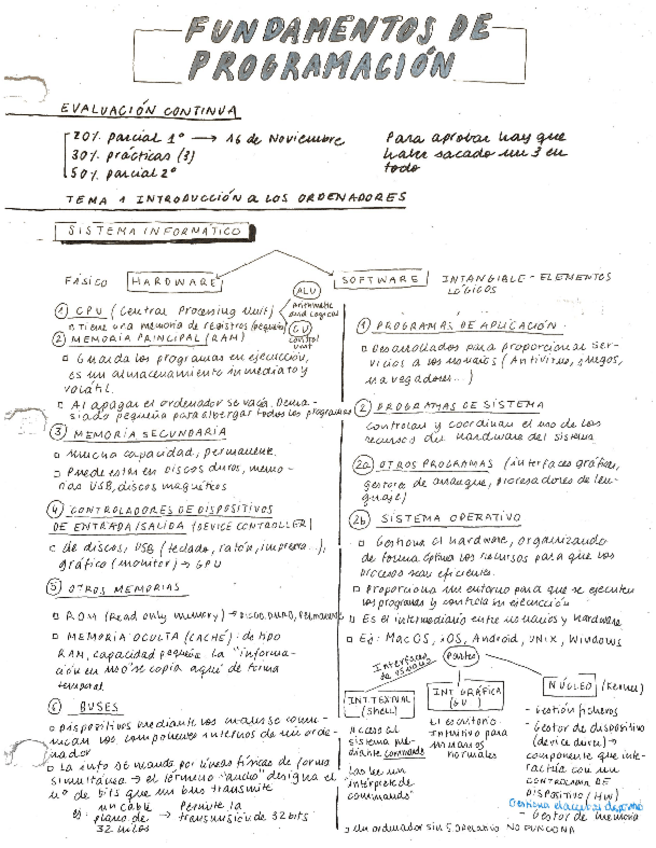 FUNDAMENTOS DE
PROGRAMACIÓN
EVALUACIÓN CONTINUA
20% parcial 1º → 16 de Noviembre
30% prácticas (3)
50% parcial 2º
Para aprobar hay que
haber sacado un 3 en
todo
TEMA 1 INTRODUCCIÓN A LOS ORDENADORES
SISTEMA INFORMÁTICO
FÁSICO HARDWARE
① CPU (Central Processing Unit)
ALU
Arithmetic
and Logical
CU
Control
Unit
▫ Tiene una memoria de registros (pequeña)
② MEMORIA PRINCIPAL (RAM)
▫ Guarda los programas en ejecución,
es un almacenamiento inmediato y
volátil.
▫ Al apagar el ordenador se vacía. Dema-
siado pequeña para albergar todos los programas
③ MEMORIA SECUNDARIA
▫ Mucha capacidad, permanente.
▫ Puede estar en discos duros, memo-
rias USB, discos magnéticos
④ CONTROLADORES DE DISPOSITIVOS
DE ENTRADA/SALIDA (DEVICE CONTROLLER)
C de discos, USB (teclado, ratón, impresora...),
gráfico (monitor) → GPU
⑤ OTROS MEMORIAS
▫ ROM (Read only memory) → DISCO DURO, PERMANENTE
▫ MEMORIA OCULTA (CACHÉ): de tipo
RAM, capacidad pequeña. La "informa-
ción en uso" se copia aquí de forma
temporal
⑥ BUSES
▫ Dispositivos mediante los cuales se comu-
nican los componentes internos de un orde-
nador
▫ La info se manda por líneas físicas de forma
simultánea → el término "ancho" designa el
nº de bits que un bus transmite
ej: un cable
plano de
32 hilos
→ Permite la
transmisión de 32 bits
SOFTWARE INTANGIBLE - ELEMENTOS
LÓGICOS
① PROGRAMAS DE APLICACIÓN.
▫ Desarrollados para proporcionar ser-
vicios a los usuarios (Antivirus, juegos,
navegadores...)
② PROGRAMAS DE SISTEMA
Controlan y coordinan el uso de los
recursos del hardware del sistema
②a OTROS PROGRAMAS (interfaces gráficas,
gestores de arranque, procesadores de len-
guaje)
②b SISTEMA OPERATIVO
▫ Gestiona el hardware, organizando
de forma óptima los recursos para que los
procesos sean eficientes.
▫ Proporciona un entorno para que se ejecuten
los programas y controla su ejecución
▫ Es el intermediario entre usuarios y hardware
▫ Ej: MacOS, iOS, Android, UNIX, Windows
Partes
Interfaces
de usuario
INT TEXTUAL
(Shell)
Acceso al
sistema me-
diante commands
Las lee un
intérprete de
commands
INT GRÁFICA
(GUI)
El escritorio
Intuitivo para
humanos
normales
NÚCLEO (Kernel)
- Gestión ficheros
- Gestor de dispositivo
(device driver) →
componente que inte-
ractúa con un
CONTROLADOR DE
DISPOSITIVO / HW)
- Gestor de memoria
▫ Un ordenador sin S operativo NO FUNCIONA